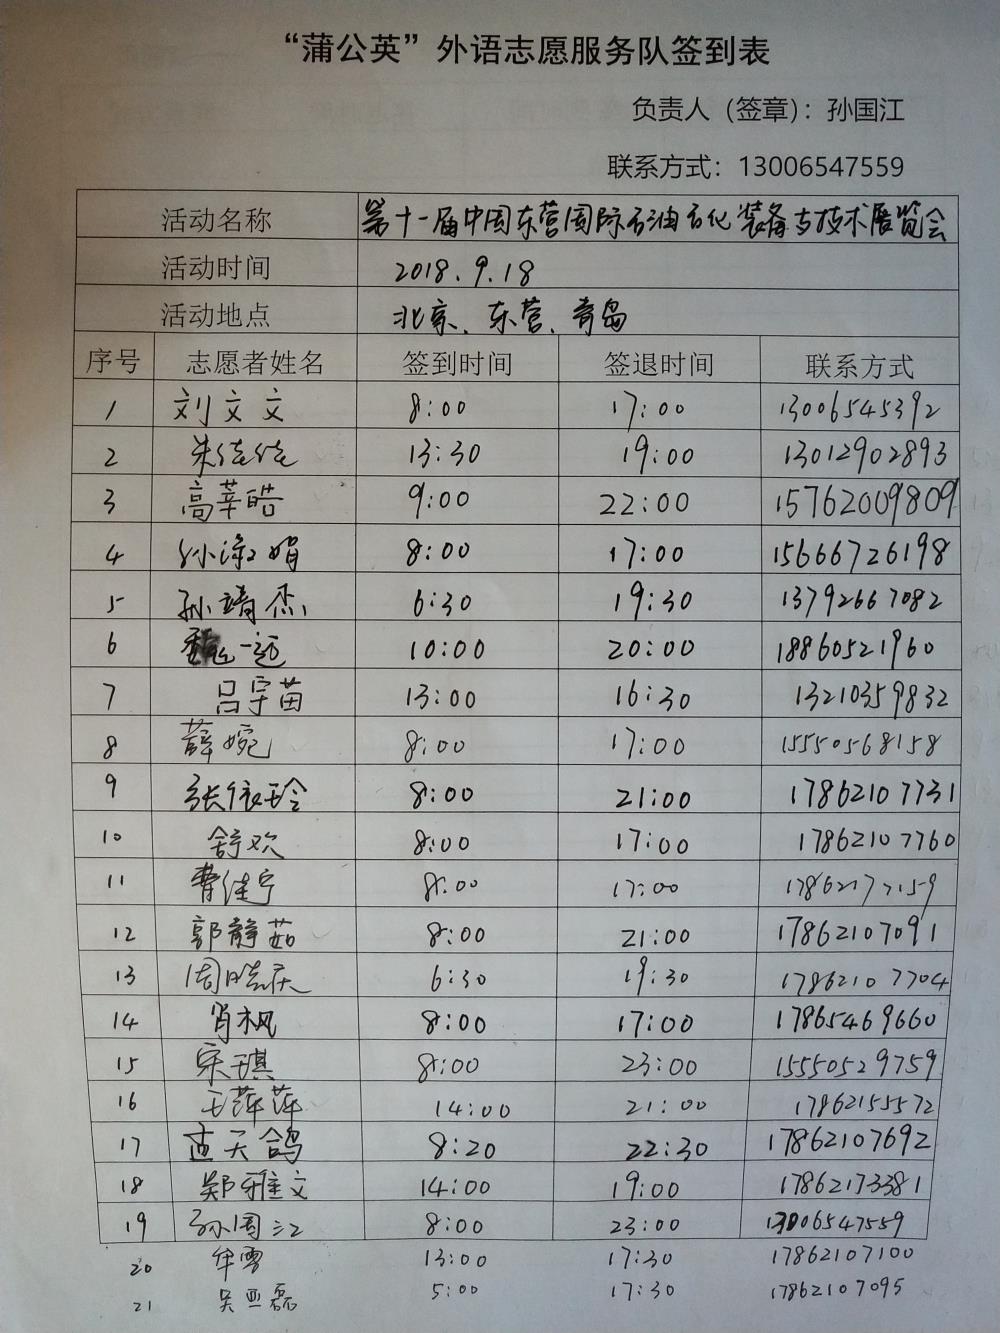 “蒲公英”外语志愿服务队签到表
负责人（签章）：孙国江
联系方式：13006547559
活动名称 第十一届中国东营国际石油石化装备与技术展览会
活动时间 2018.9.18
活动地点 北京、东营、青岛
序号 志愿者姓名 签到时间 签退时间 联系方式
1 刘文文 8:00 17:00 13006545392
2 朱佳佳 13:30 19:00 13012902893
3 高莘皓 9:00 22:00 15762009809
4 孙 娟 8:00 17:00 15666726198
5 孙靖杰 6:30 19:30 13792667082
6 魏一远 10:00 20:00 18860521960
7 吕宇苗 13:00 16:30 13210359832
8 薛婉 8:00 17:00 15550568158
9 张依玲 8:00 21:00 17862107731
10 舒欢 8:00 17:00 17862107760
11 曹佳宁 8:00 17:00 17862177159
12 郭静茹 8:00 21:00 17862107091
13 周皓庆 6:30 19:30 17862107704
14 肖枫 8:00 17:00 17865469660
15 宋琪 8:00 23:00 15550529759
16 王萍萍 14:00 21:00 17862155572
17 天鸽 8:20 22:30 17862107692
18 郑雅文 14:00 19:00 17862173381
19 孙国江 8:00 23:00 13006547559
20 牟雪 13:00 17:30 17862107100
21 吴亚磊 5:00 17:30 17862107095